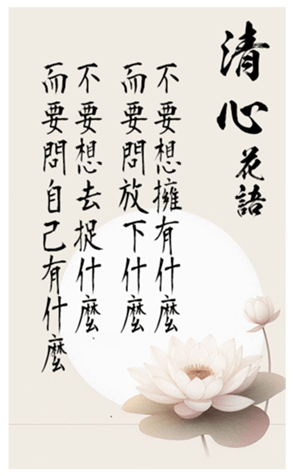 清心花語
不要想擁有什麼
而要問放下什麼
不要想去捉什麼
而要問自己有什麼